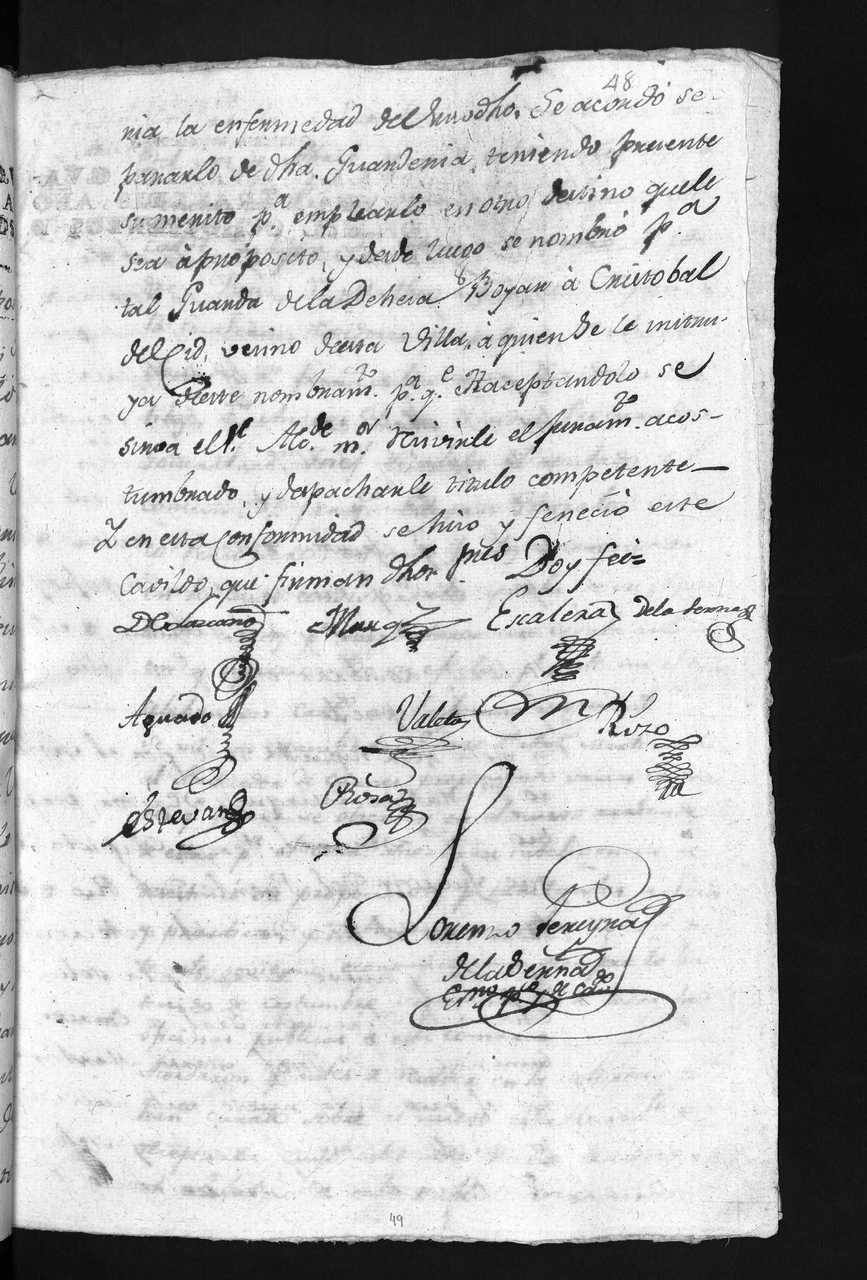 48
nia la enfermedad del susodho. Se acordó se-
pararlo de dha. Guarderia, teniendo presente
su merito p.a emplearlo en otro destino que le
sea à proposito, y desde luego se nombró p.a
tal Guarda de la Dehesa Boyar à Cristobal
del Cid, vecino de esta Villa, à quien se le instru-
ya de este nombram.to p.a q.e aceptandolo se
sirva el S.r Alc.de m.or recivirle el juram.to acos-
tumbrado, y despacharle titulo competente
Y en esta conformidad se hizo y feneció este
Cavildo, que firman dhos. Doy fee=
Marqz Escalera de la Serna
Aguado Valeta Rizo
Estevan Rosa
Lorenzo Pereyra
de la Serna
Ess.no p.co y de Cav.do
49